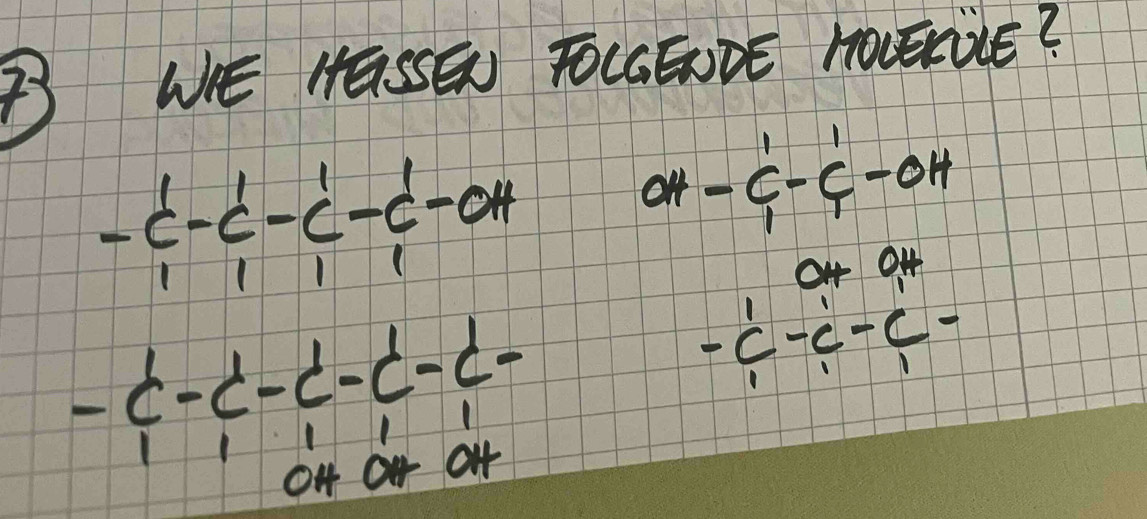 7) WIE HEISSEN FOLGENDE MOLEKÜLE?
-C-C-C-C-OH
OH-C-C-OH
OH OH
-C-C-C-
-C-C-C-C-C-
OH OH OH